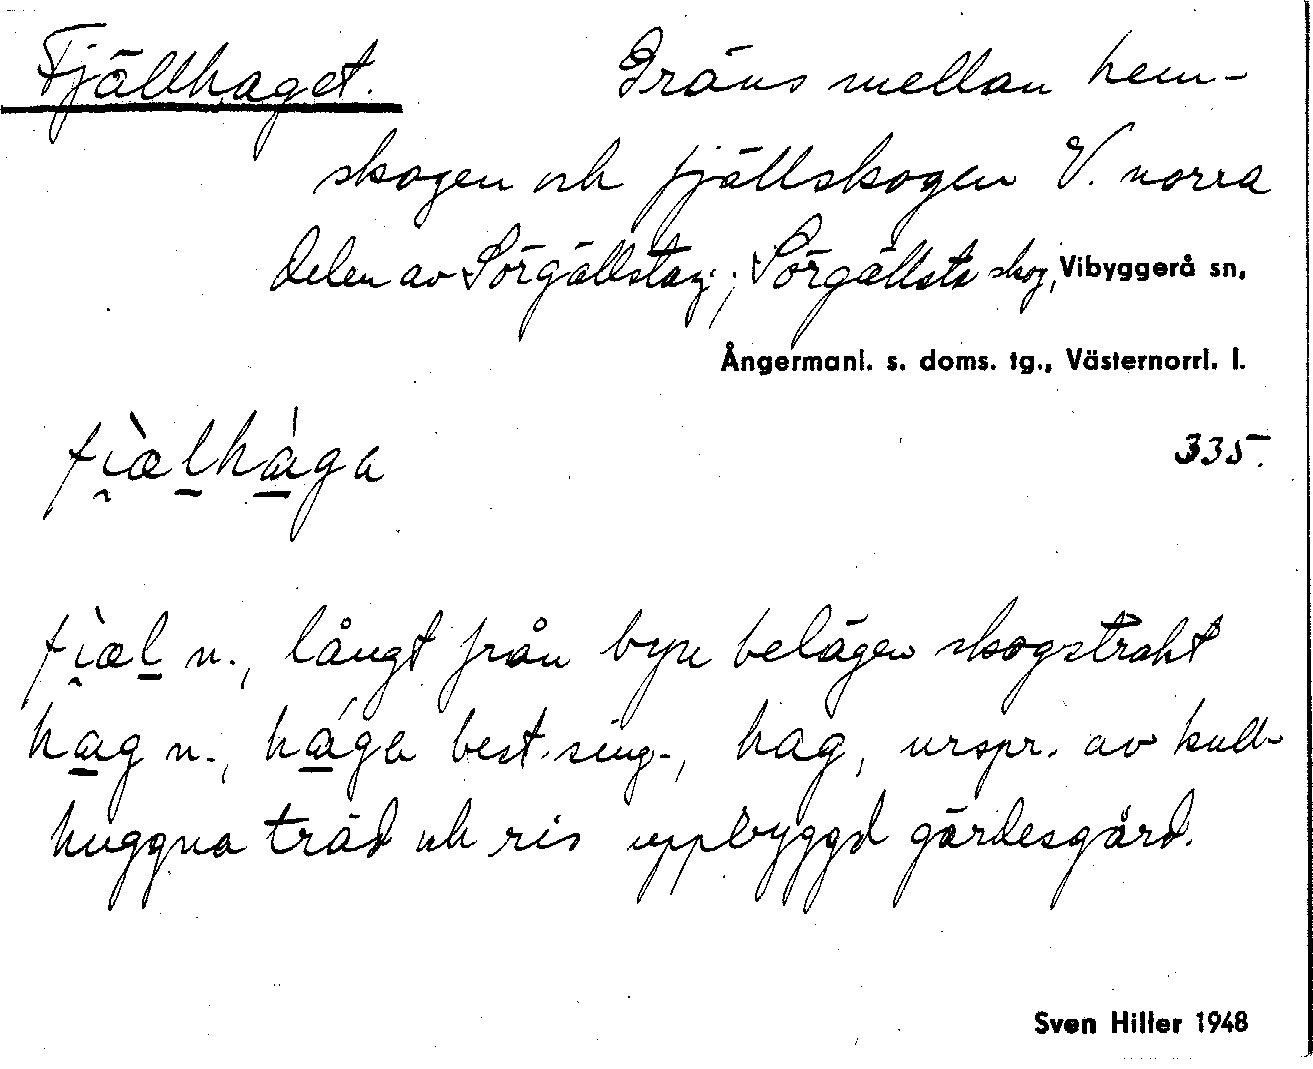 Fjällhaget. Gräns mellan hem-
skogen och fjällskogen V. norra
delen av Sörgällstasj.; Sörgällsta skog, Vibyggerå sn,
Ångermanl. s. doms. tg., Västernorrl. l.
fi̯æ̀lhága 335.
fi̯æ̀l n., långt från byn belägen skogstrakt
hag n., hága best. sing., hag, urspr. av kull-
huggna träd och ris uppbyggd gärdesgård.
Sven Hiller 1948